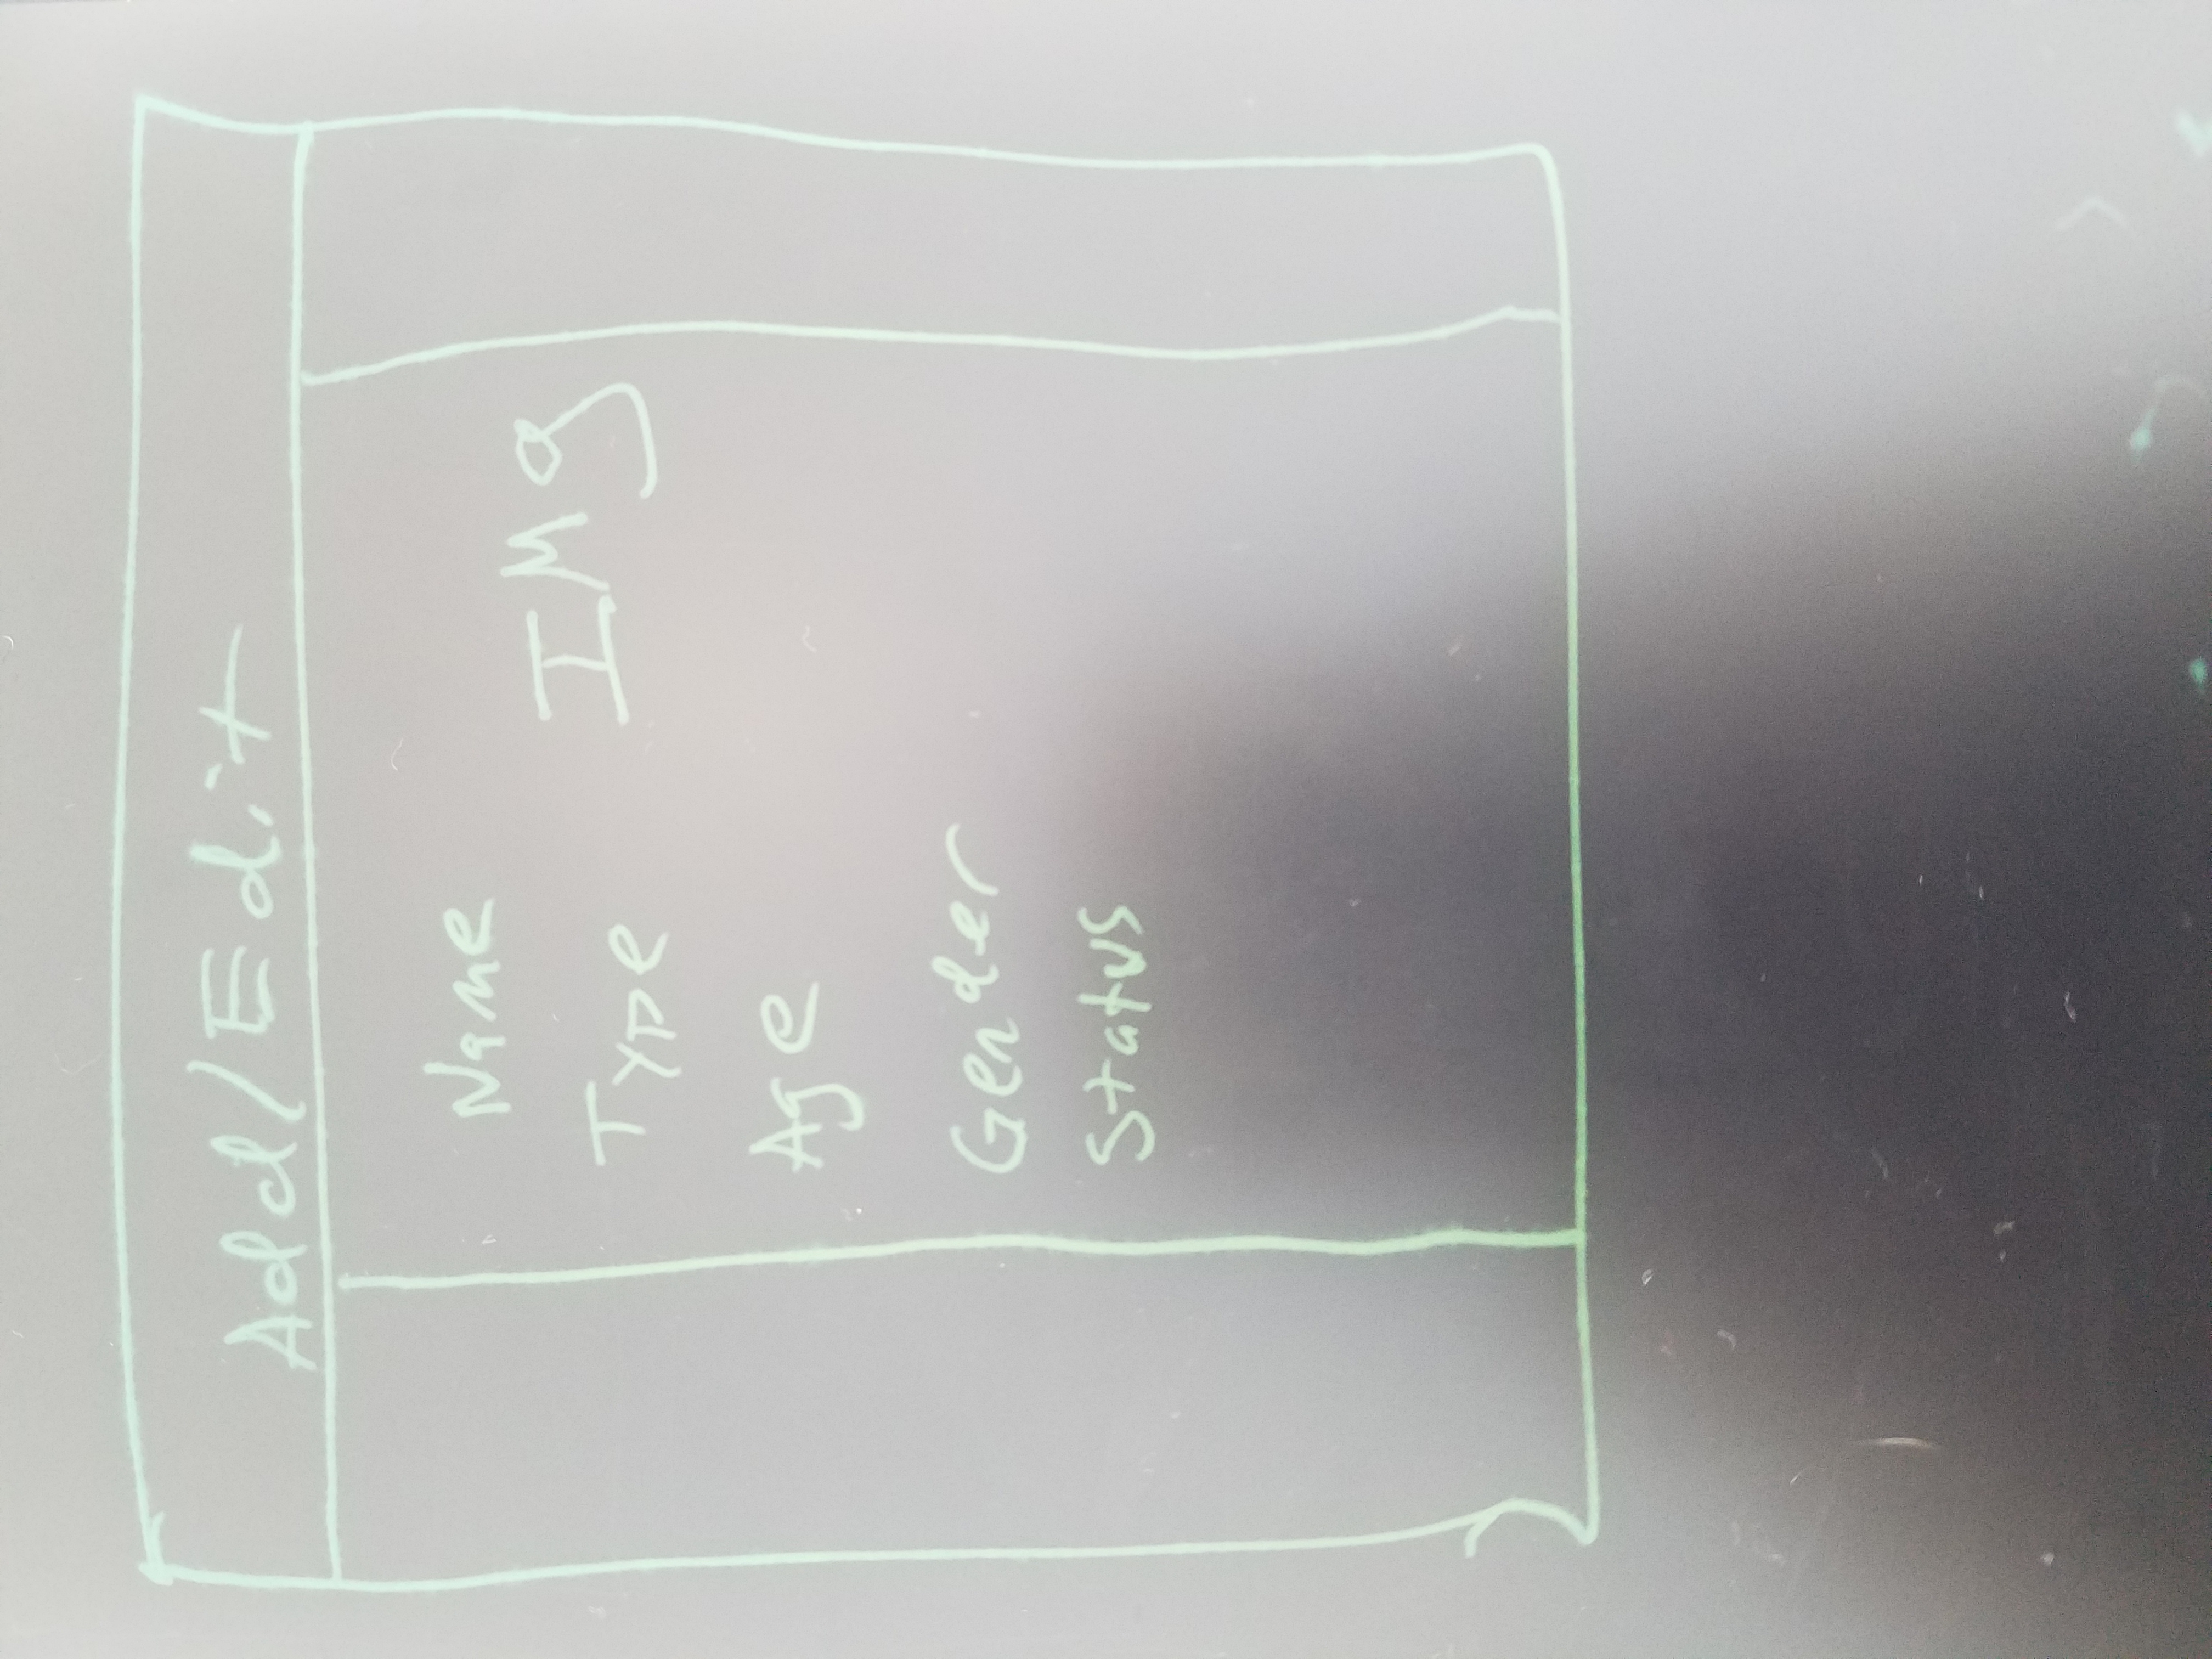 Add/Edit
Name
IMg
Type
Age
Gender
Status